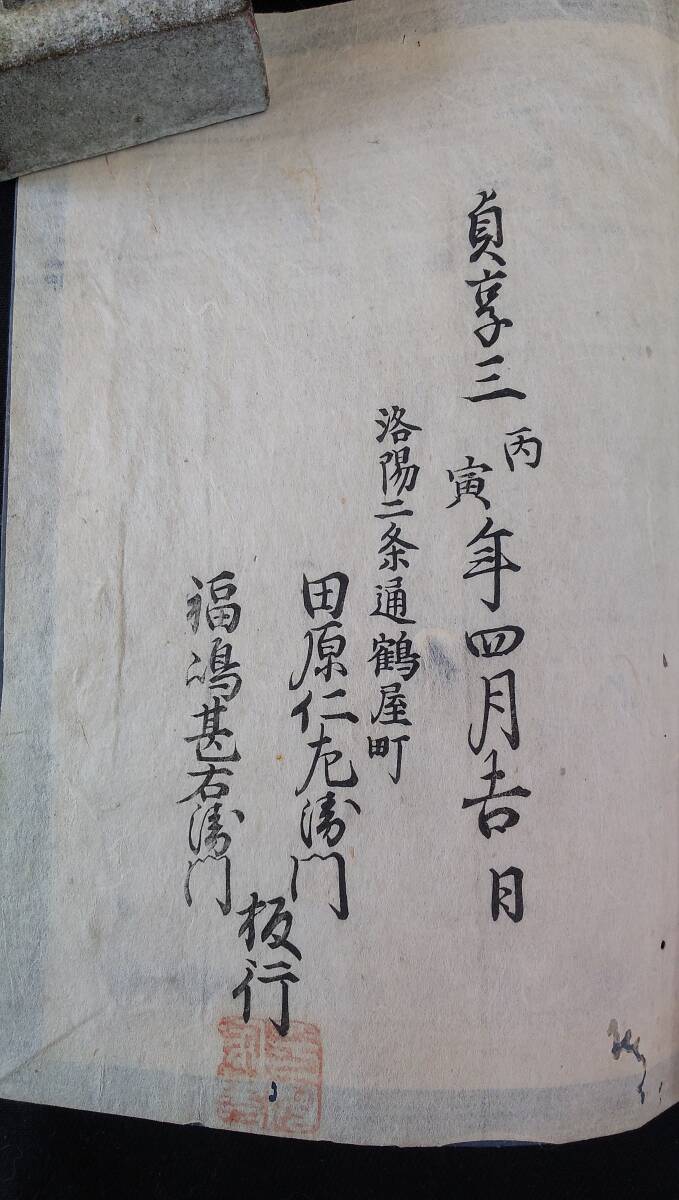 貞享三丙寅年四月吉日
洛陽二条通鶴屋町
田原仁左衛門
福嶋甚右衛門
板行